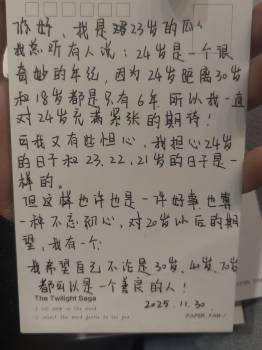 你好,我是23岁的
我总听有人说:24岁是一个很
奇妙的年纪,因为24岁距离30岁
和18岁都是只有6年.所以我一直
对24岁充满紧张的期待!
可我又有些担心,我担心24岁
的日子和23、22、21岁的日子是一
样的。
但这样也许也是一件好事,也算
一种不忘初心,对20岁以后的期
望,我有一个:
我希望自己不论是30岁、40岁、70岁
都可以是一个善良的人!
The Twilight Saga
2025.11.30.
PAPER FAN